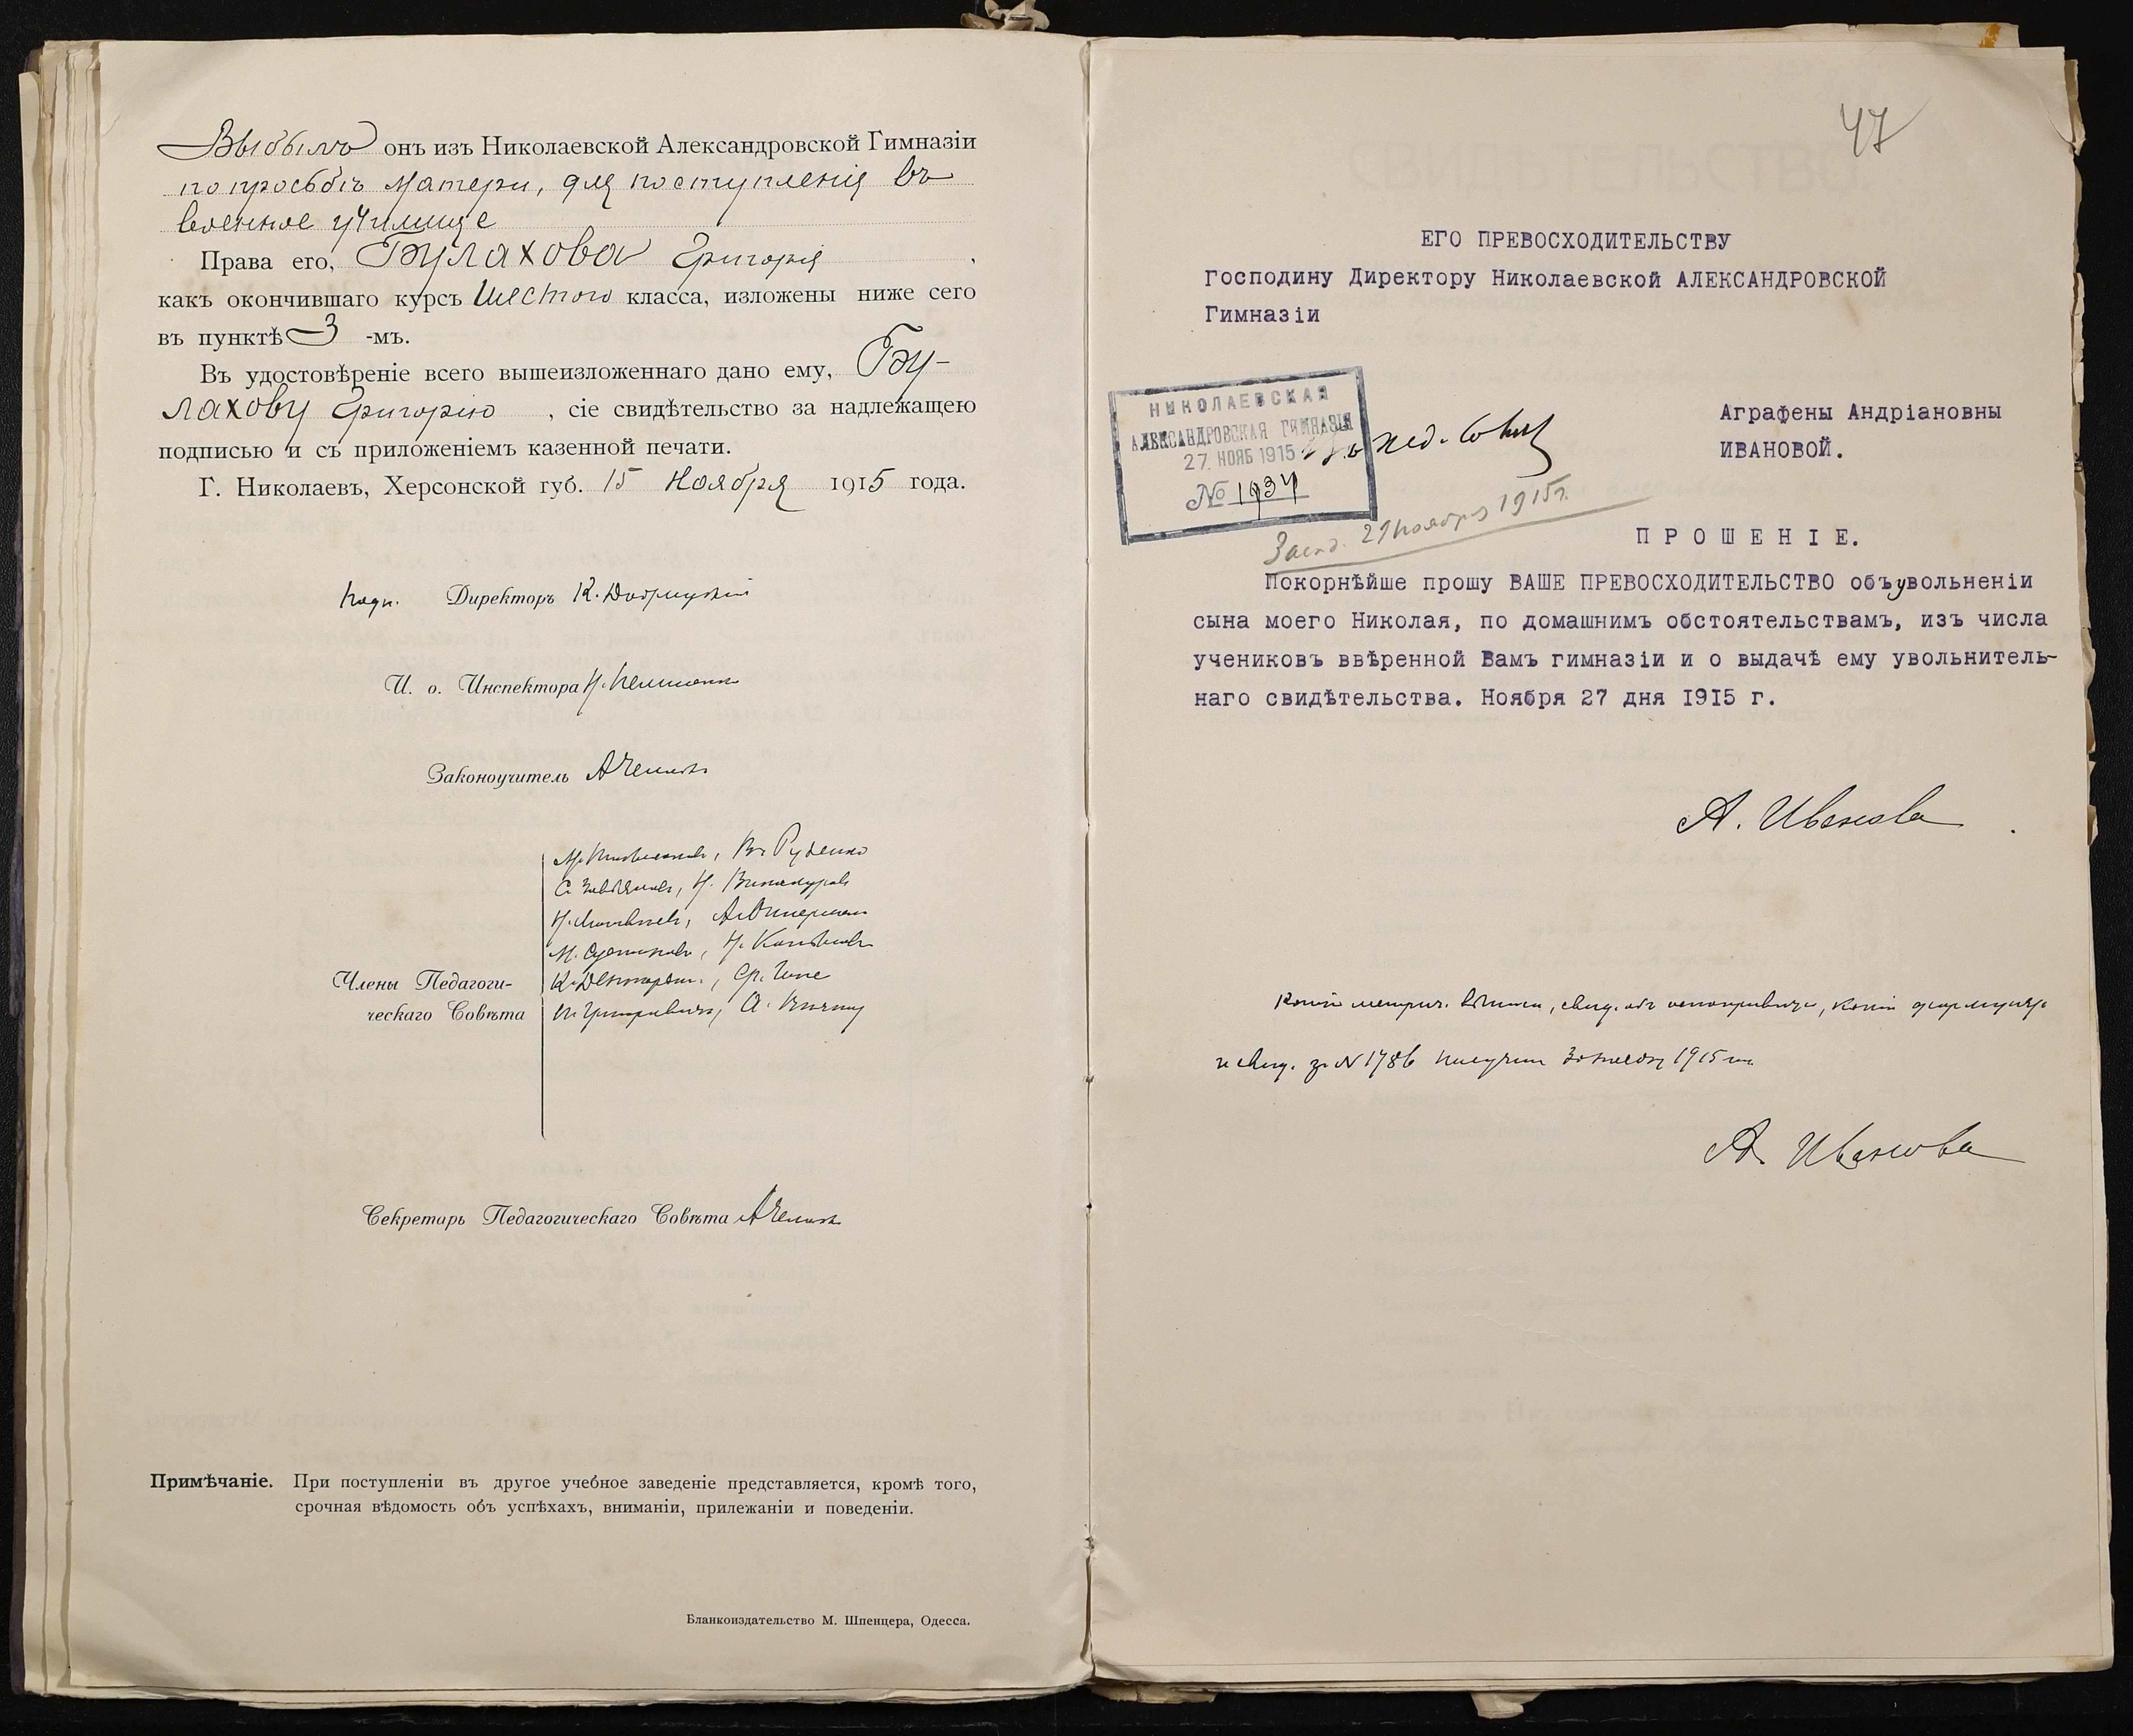 Выбылъ онъ изъ Николаевской Александровской Гимназіи
по просьбѣ матери, для поступленія въ
военное училище
Права его, Булахова Григорія
какъ окончившаго курсъ шестого класса, изложены ниже сего
въ пунктѣ 3 -мъ.
Въ удостовѣреніе всего вышеизложеннаго дано ему, Бу-
лахову Григорію , сіе свидѣтельство за надлежащею
подписью и съ приложеніемъ казенной печати.
Г. Николаевъ, Херсонской губ. 15 Ноября 1915 года.
Подп. Директоръ К.
И. о. Инспектора Н.
Законоучитель
Вл. Руденко
Члены Педагоги-
ческаго Совѣта
Секретарь Педагогическаго Совѣта
Примѣчаніе. При поступленіи въ другое учебное заведеніе представляется, кромѣ того,
срочная вѣдомость объ успѣхахъ, вниманіи, прилежаніи и поведеніи.
Бланкоиздательство М. Шпенцера, Одесса.
47
ЕГО ПРЕВОСХОДИТЕЛЬСТВУ
Господину Директору Николаевской АЛЕКСАНДРОВСКОЙ
Гимназіи
НИКОЛАЕВСКАЯ
АЛЕКСАНДРОВСКАЯ ГИМНАЗІЯ
27. НОЯБ 1915
№ 1937
въ пед. совѣт
Засѣд. 29 ноября 1915 г.
Аграфены Андріановны
ИВАНОВОЙ.
ПРОШЕНІЕ.
Покорнѣйше прошу ВАШЕ ПРЕВОСХОДИТЕЛЬСТВО объ увольненіи
сына моего Николая, по домашнимъ обстоятельствамъ, изъ числа
учениковъ ввѣренной Вамъ гимназіи и о выдачѣ ему увольнитель-
наго свидѣтельства. Ноября 27 дня 1915 г.
А. Иванова
Копію метрич. выписи, свид. объ оспопрививаніи, копію формуляра
и свид. за № 1786 получила 30 ноября 1915 г.
А. Иванова